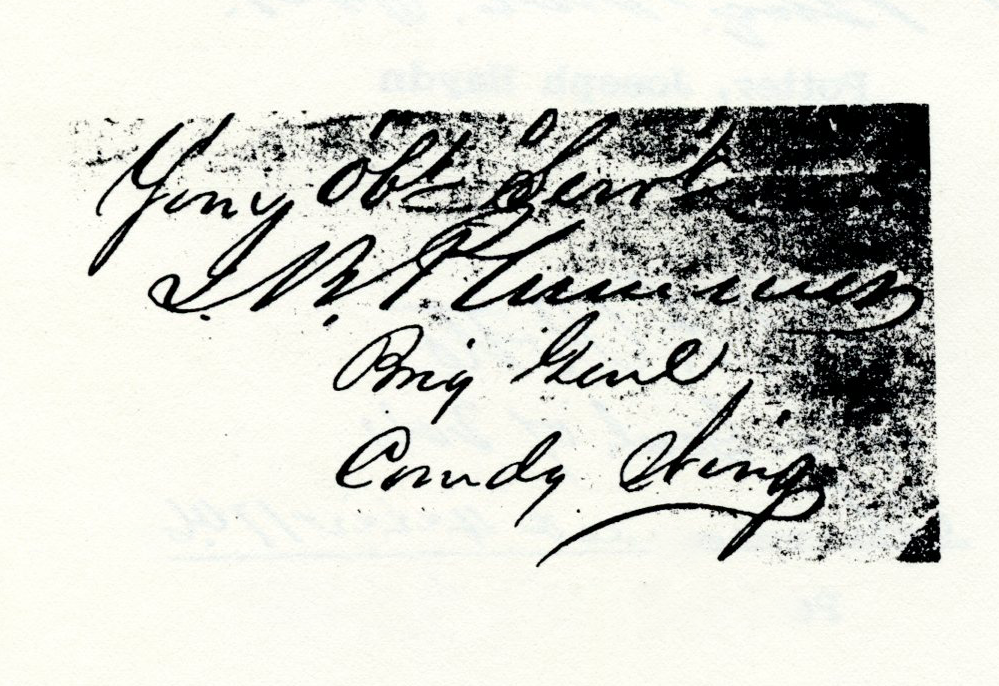 Potter, Joseph Haydn
Obt Servt
J. B. Plummer
Brig Genl
Comdg Wing